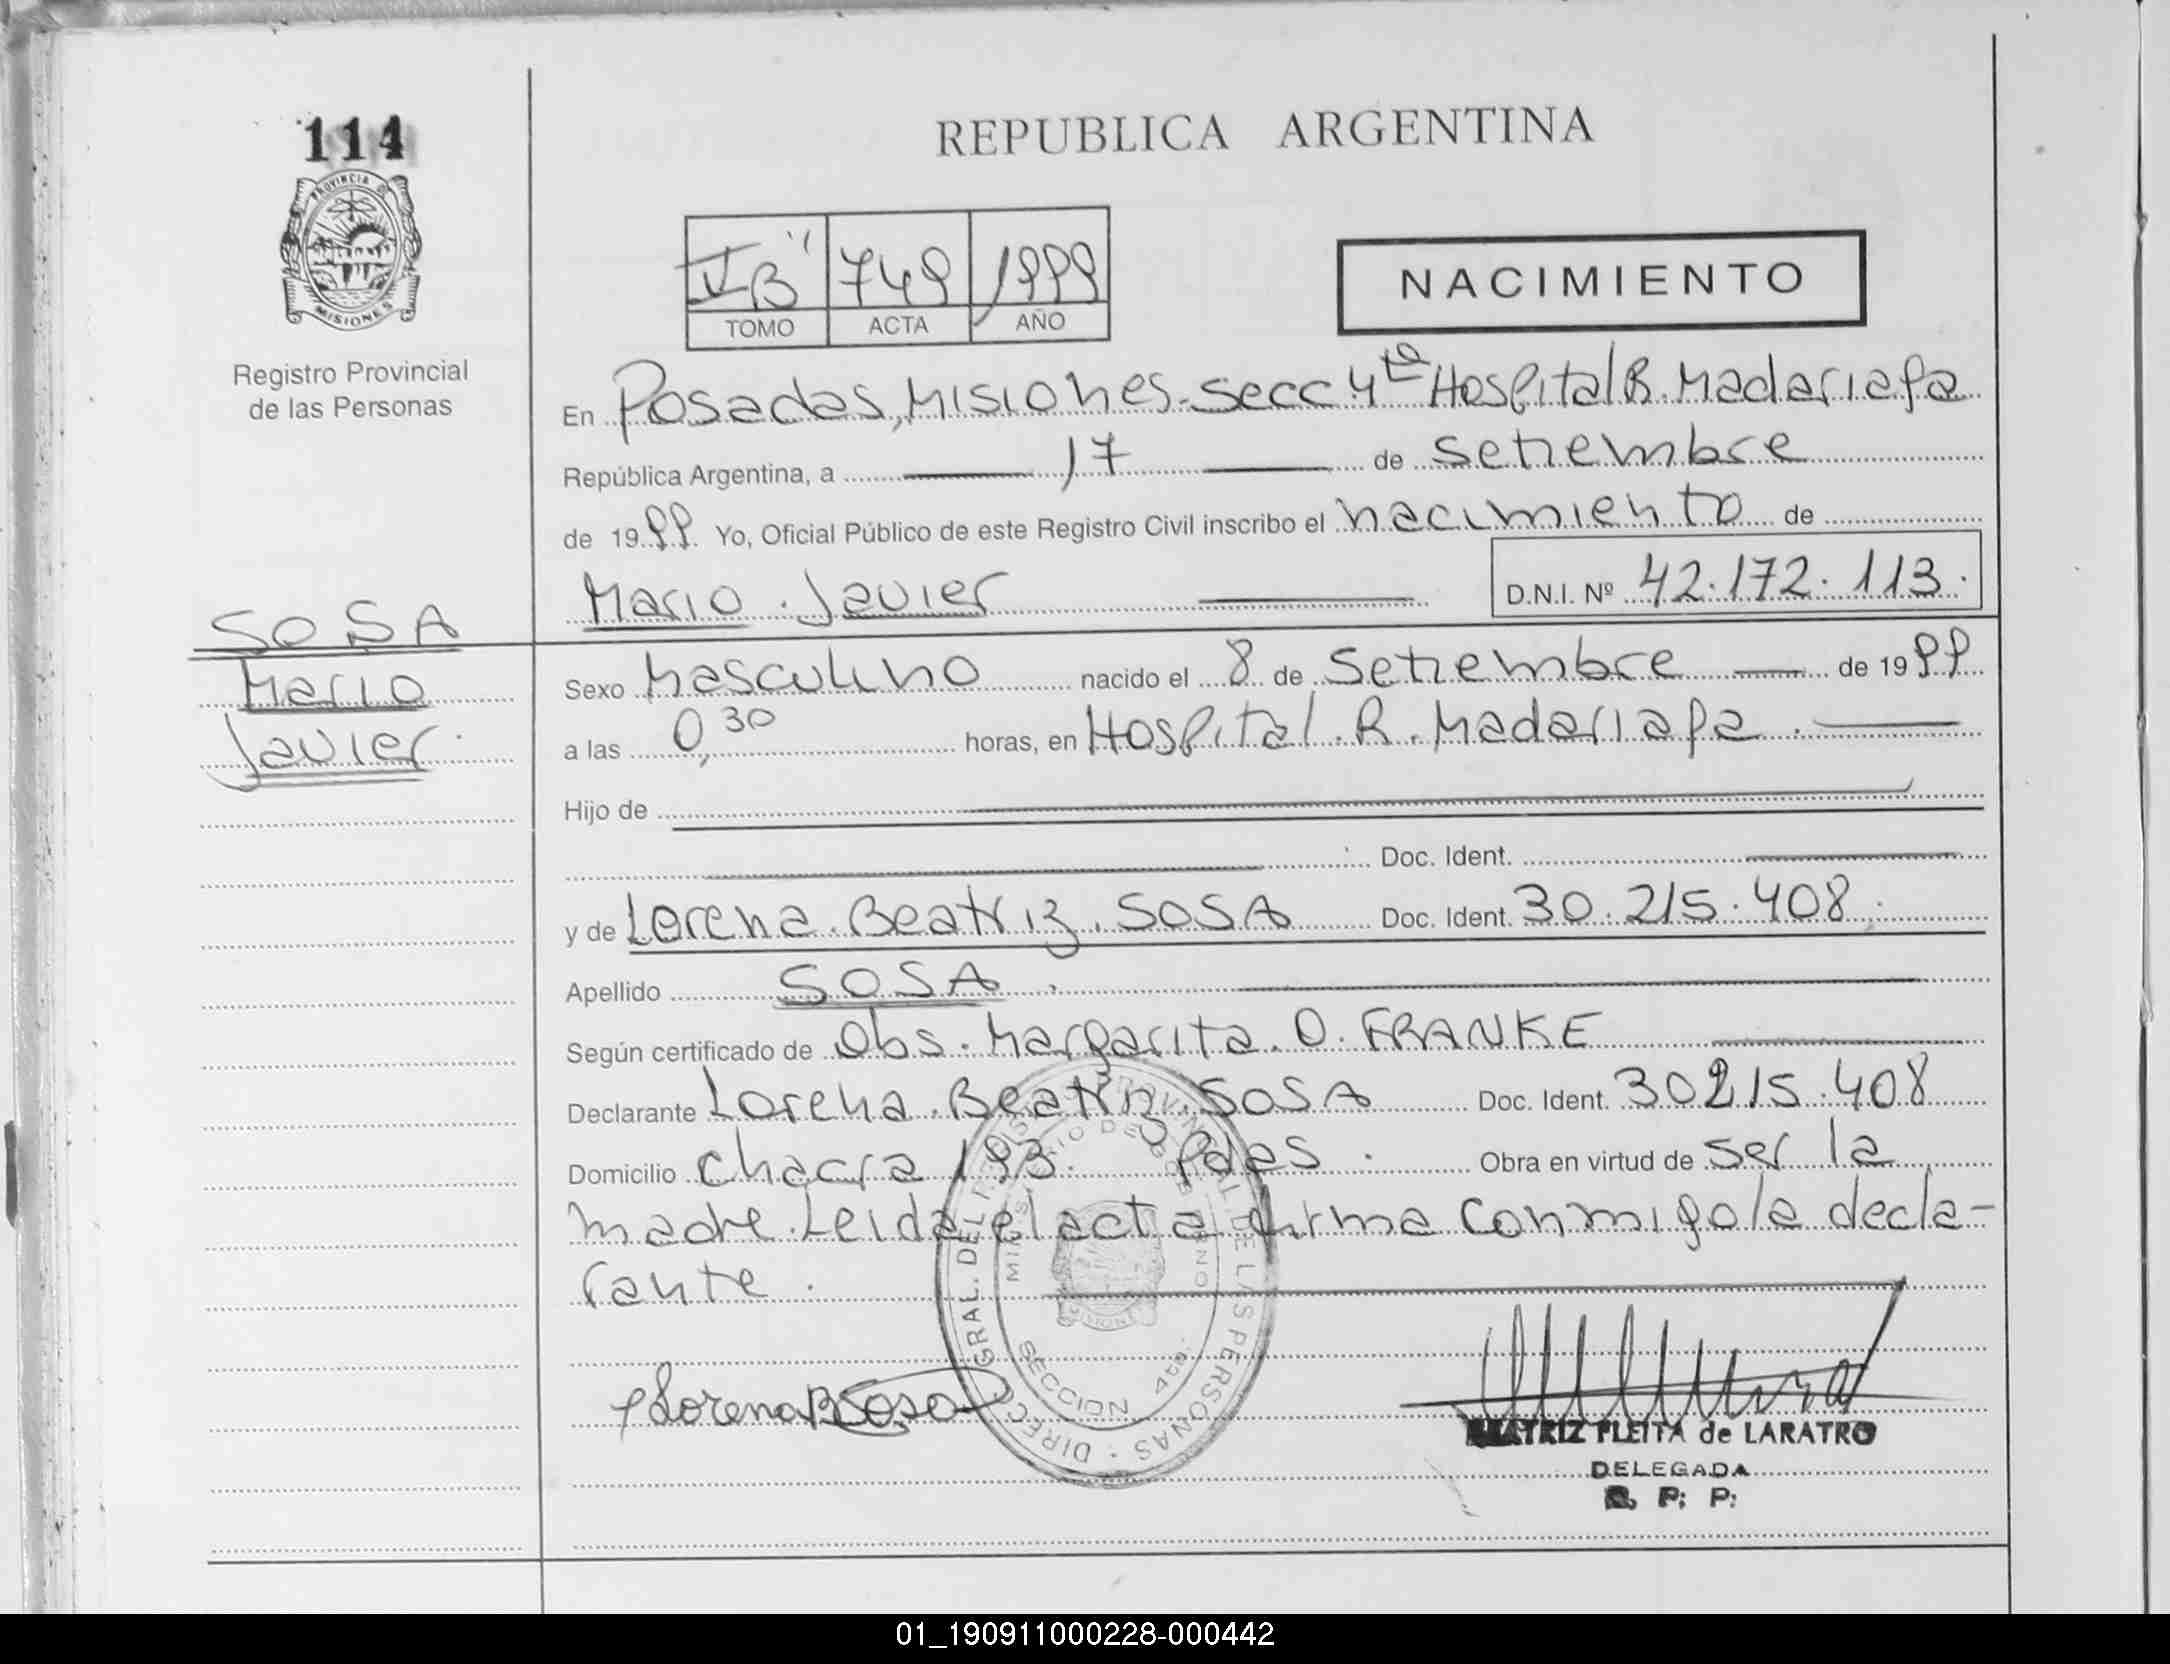 114
REPUBLICA ARGENTINA
PROVINCIA D
MISIONES
VB" 749 1999
TOMO ACTA AÑO
NACIMIENTO
Registro Provincial
de las Personas
En Posadas, Misiones. Secc 4ta Hospital R. Madariaga
República Argentina, a 17 de Setiembre
de 1999 Yo, Oficial Público de este Registro Civil inscribo el nacimiento de
Mario Javier D.N.I. Nº 42.172.113.
SOSA
Mario
Javier.
Sexo Masculino nacido el 8 de Setiembre de 1999
a las 0,30 horas, en Hospital R. Madariaga.
Hijo de
Doc. Ident.
y de Lorena Beatriz SOSA Doc. Ident. 30.215.408.
Apellido SOSA.
Según certificado de Obs. Margarita O. FRANKE
Declarante Lorena Beatriz SOSA Doc. Ident. 30215.408
Domicilio Chacra 193. Pdas. Obra en virtud de ser la
madre. Leida el acta firma conmigo la decla-
rante.
Lorena B Sosa
SECCION 4ta.
BEATRIZ FLEITA de LARATRO
DELEGADA
R. P. P.
01_190911000228-000442